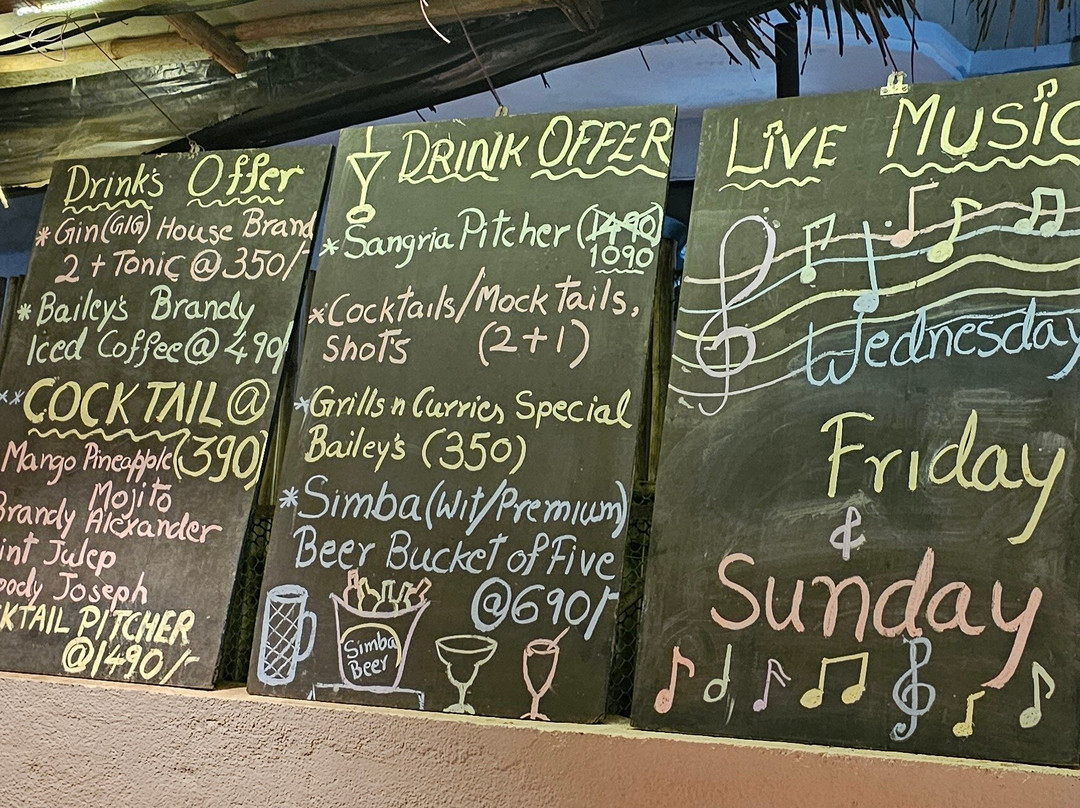 Drink's Offer
* Gin (GIG) House Brand
2 + Tonic @ 350/-
* Bailey's Brandy
Iced Coffee @ 490/
** COCKTAIL @
(390)
Mango Pineapple
Mojito
Brandy Alexander
int Julep
oody Joseph
CKTAIL PITCHER
@1490/-
DRINK OFFER
* Sangria Pitcher (1490)
1090
* Cocktails/Mocktails,
shots (2+1)
* Grills n Curries Special
Bailey's (350)
* Simba (Wit/Premium)
Beer Bucket of Five
@690/-
Simba
Beer
LIVE MUSIC
Wednesday
Friday
&
Sunday